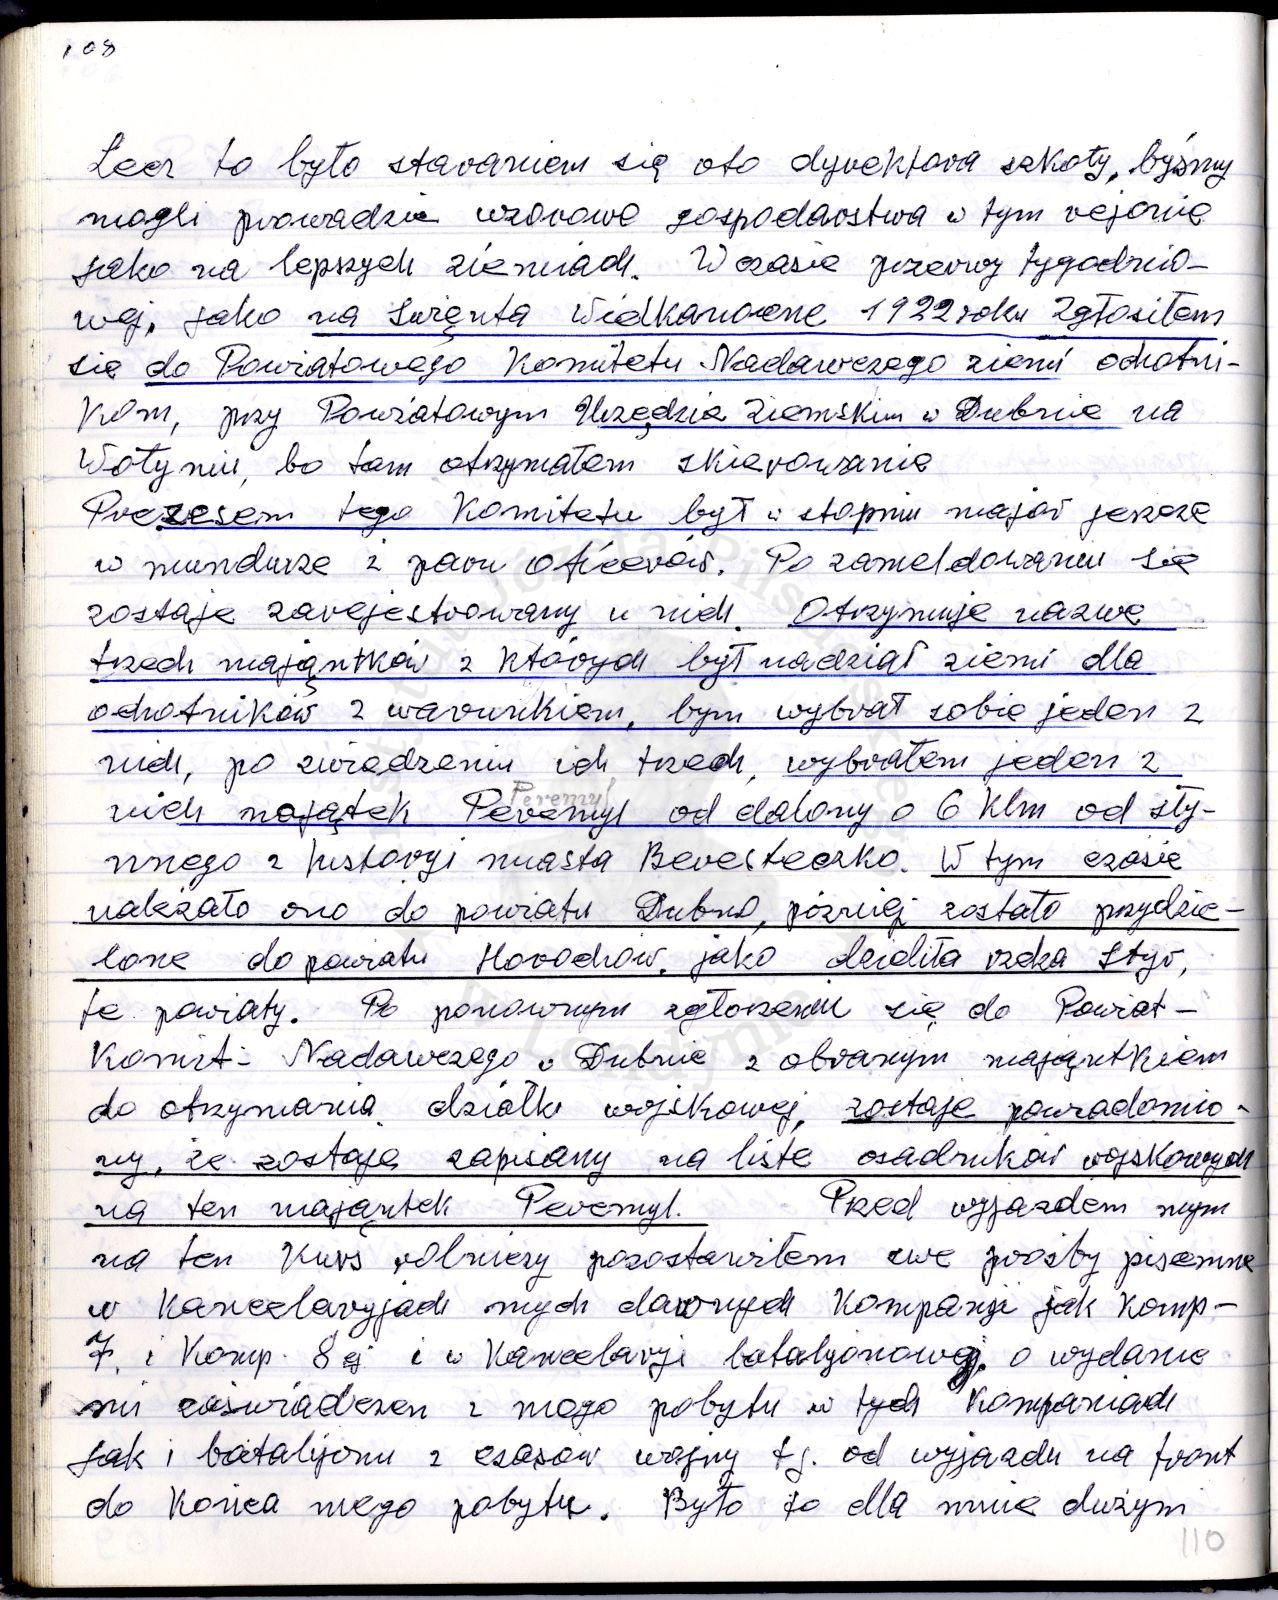 108
Lecz to było staraniem się oto dyrektora szkoły, byśmy
mogli prowadzić wzorowe gospodarstwa w tym rejonie
jako na lepszych ziemiach. W czasie przerwy tygodnio-
wej, jako na święnta Wielkanocne 1922 roku zgłosiłem
się do Powiatowego Komitetu Nadawczego ziemi ochotni-
kom, przy Powiatowym Urzędzie Ziemskim w Dubnie na
Wołyniu, bo tam otrzymałem skierowanie
Prezesem tego Komitetu był w stopniu major jeszcze
w mundurze i paru oficerów. Po zameldowaniu się
zostaje zarejestrowany u nich. Otrzymuje nazwe
trzech majątków z których był nadział ziemi dla
ochotników z warunkiem, bym wybrał sobie jeden z
nich, po zwiedzeniu ich trzech, wybrałem jeden z
Peremyl
nich majątek Peremyl od dalony o 6 Klm od sły-
nnego z historyi miasta Beresteczko. W tym czasie
należało ono do powiatu Dubno, później zostało przydzie-
lone do powiatu Horochów, jako dzieliła rzeka Styr,
te powiaty. Po ponownym zgłoszeniu się do Powiat-
Komit- Nadawczego w Dubnie z obranym mająntkiem
do otrzymania działki wojskowej, zostaje powiadomio-
ny, że zostaje zapisany na liste osadników wojskowych
na ten mająntek Peremyl. Przed wyjazdem mym
na ten Kurs rolniczy pozostawiłem swe prośby pisemne
w Kancelaryjach mych dawnych Kompanji jak Komp-
7. i Komp. 8 ej i w Kancelaryi batalyonowej, o wydanie
mi zaświadczeń z mego pobytu w tych Kompaniach
jak i batalijonu z czasów wojny tj. od wyjazdu na front
do końca mego pobytu. Było to dla mnie dużym
110
Peremyl